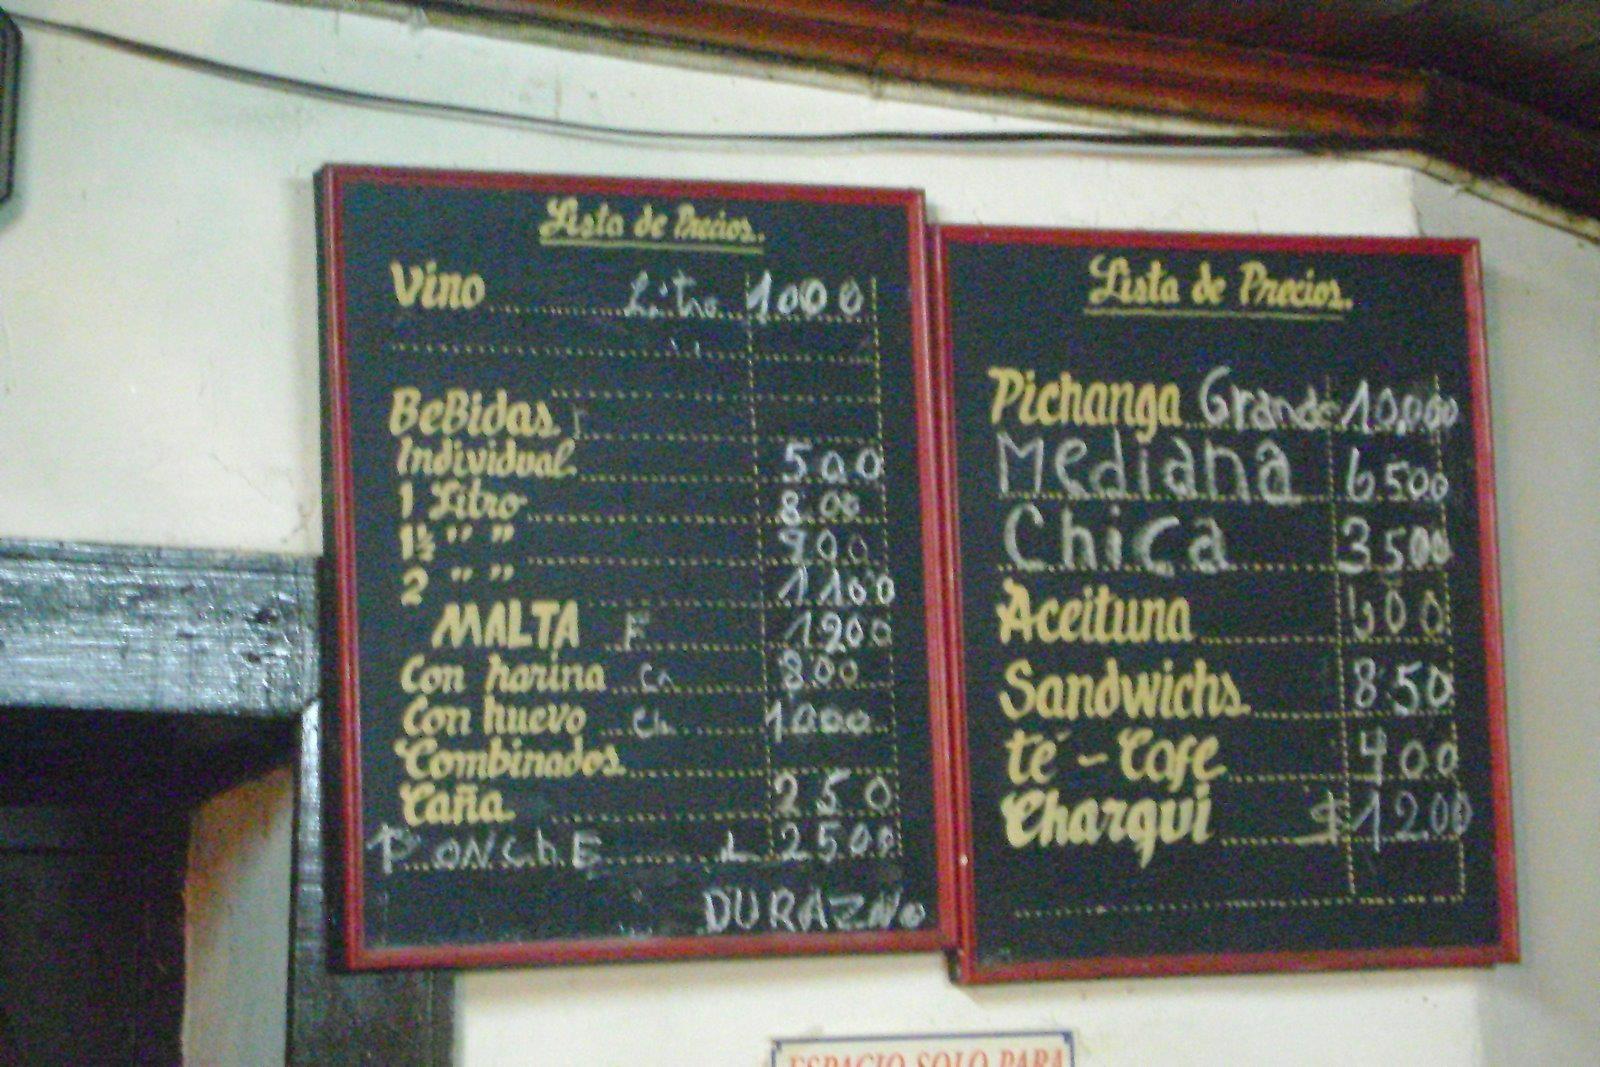 Lista de Precios.
Vino Litro 1000
BeBidas
Individual 500
1 Litro 800
1½ " " 900
2 " " 1100
MALTA F 1200
Con harina Ch 800
Con huevo Ch 1000
Combinados
Caña 250
PONChE L 2500
DURAZNo
Lista de Precios.
Pichanga Grande 10.000
Mediana 6500
Chica 3500
Aceituna 600
Sandwichs 850
té - Cafe 400
Charqui $1200
ESPACIO SOLO PARA